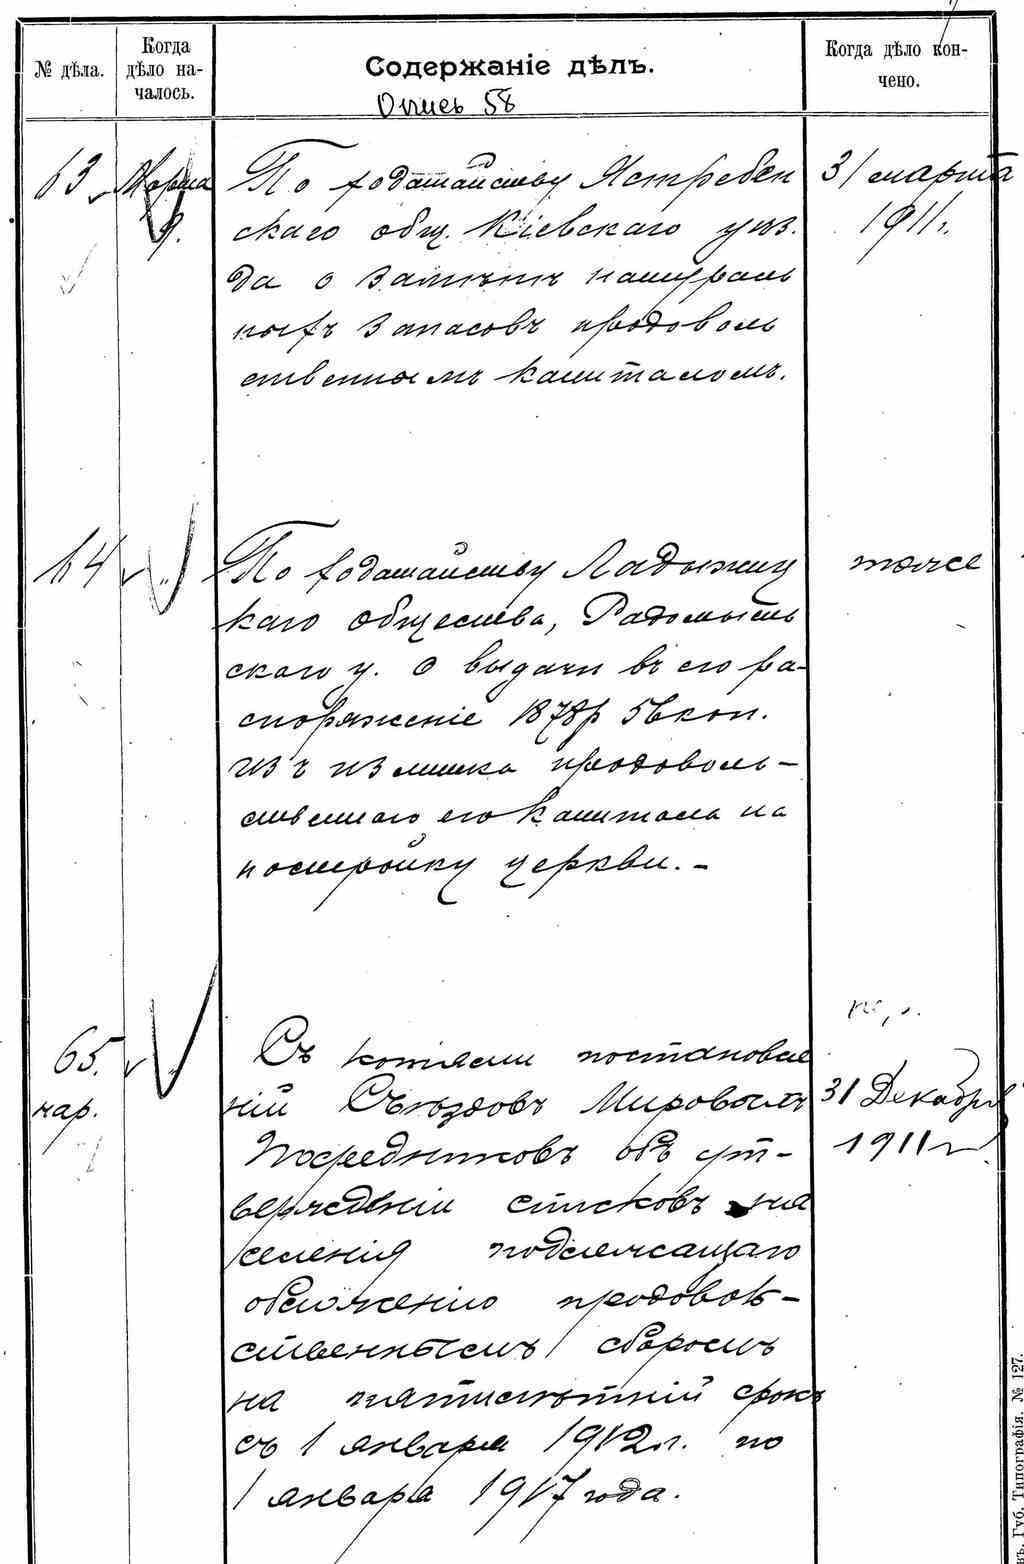 № дѣла.
Когда дѣло на-чалось.
Содержаніе дѣлъ.
Когда дѣло кон-чено.
Опись 58
63
Марта
9.
По ходатайству Ястребен
скаго общ. Кіевскаго уѣз.
да о замѣнѣ натураль
ныхъ запасовъ продоволь
ственнымъ капиталомъ.
31 марта
1911г.
64
"
По ходатайству Ладыжиц
каго общества, Радомысль
скаго у. о выдачи въ его ра-
споряженіе 1878р 56коп.
изъ излишка продоволь-
ственнаго его капитала на
постройку церкви.-
тоже
65.
нар.
"
Съ копіями постановле
ній Съѣздовъ Мировыхъ
Посредниковъ объ ут-
вержденіи списковъ на
селенія подлежащаго
обложенію продоволь-
ственнымъ сборомъ
на пятилѣтній срокъ
съ 1 января 1912г. по
1 января 1917 года.
31 Декабря
1911г.
Губ. Типографія. № 127.